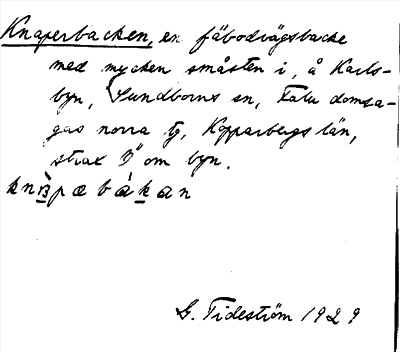 Knaperbacken, en fäbodvägsbacke
med mycken småsten i, å Karls-
byn, Sundborns sn, Falu domsa-
gas norra tg, Kopparbergs län,
strax V om byn.
G. Tideström 1929